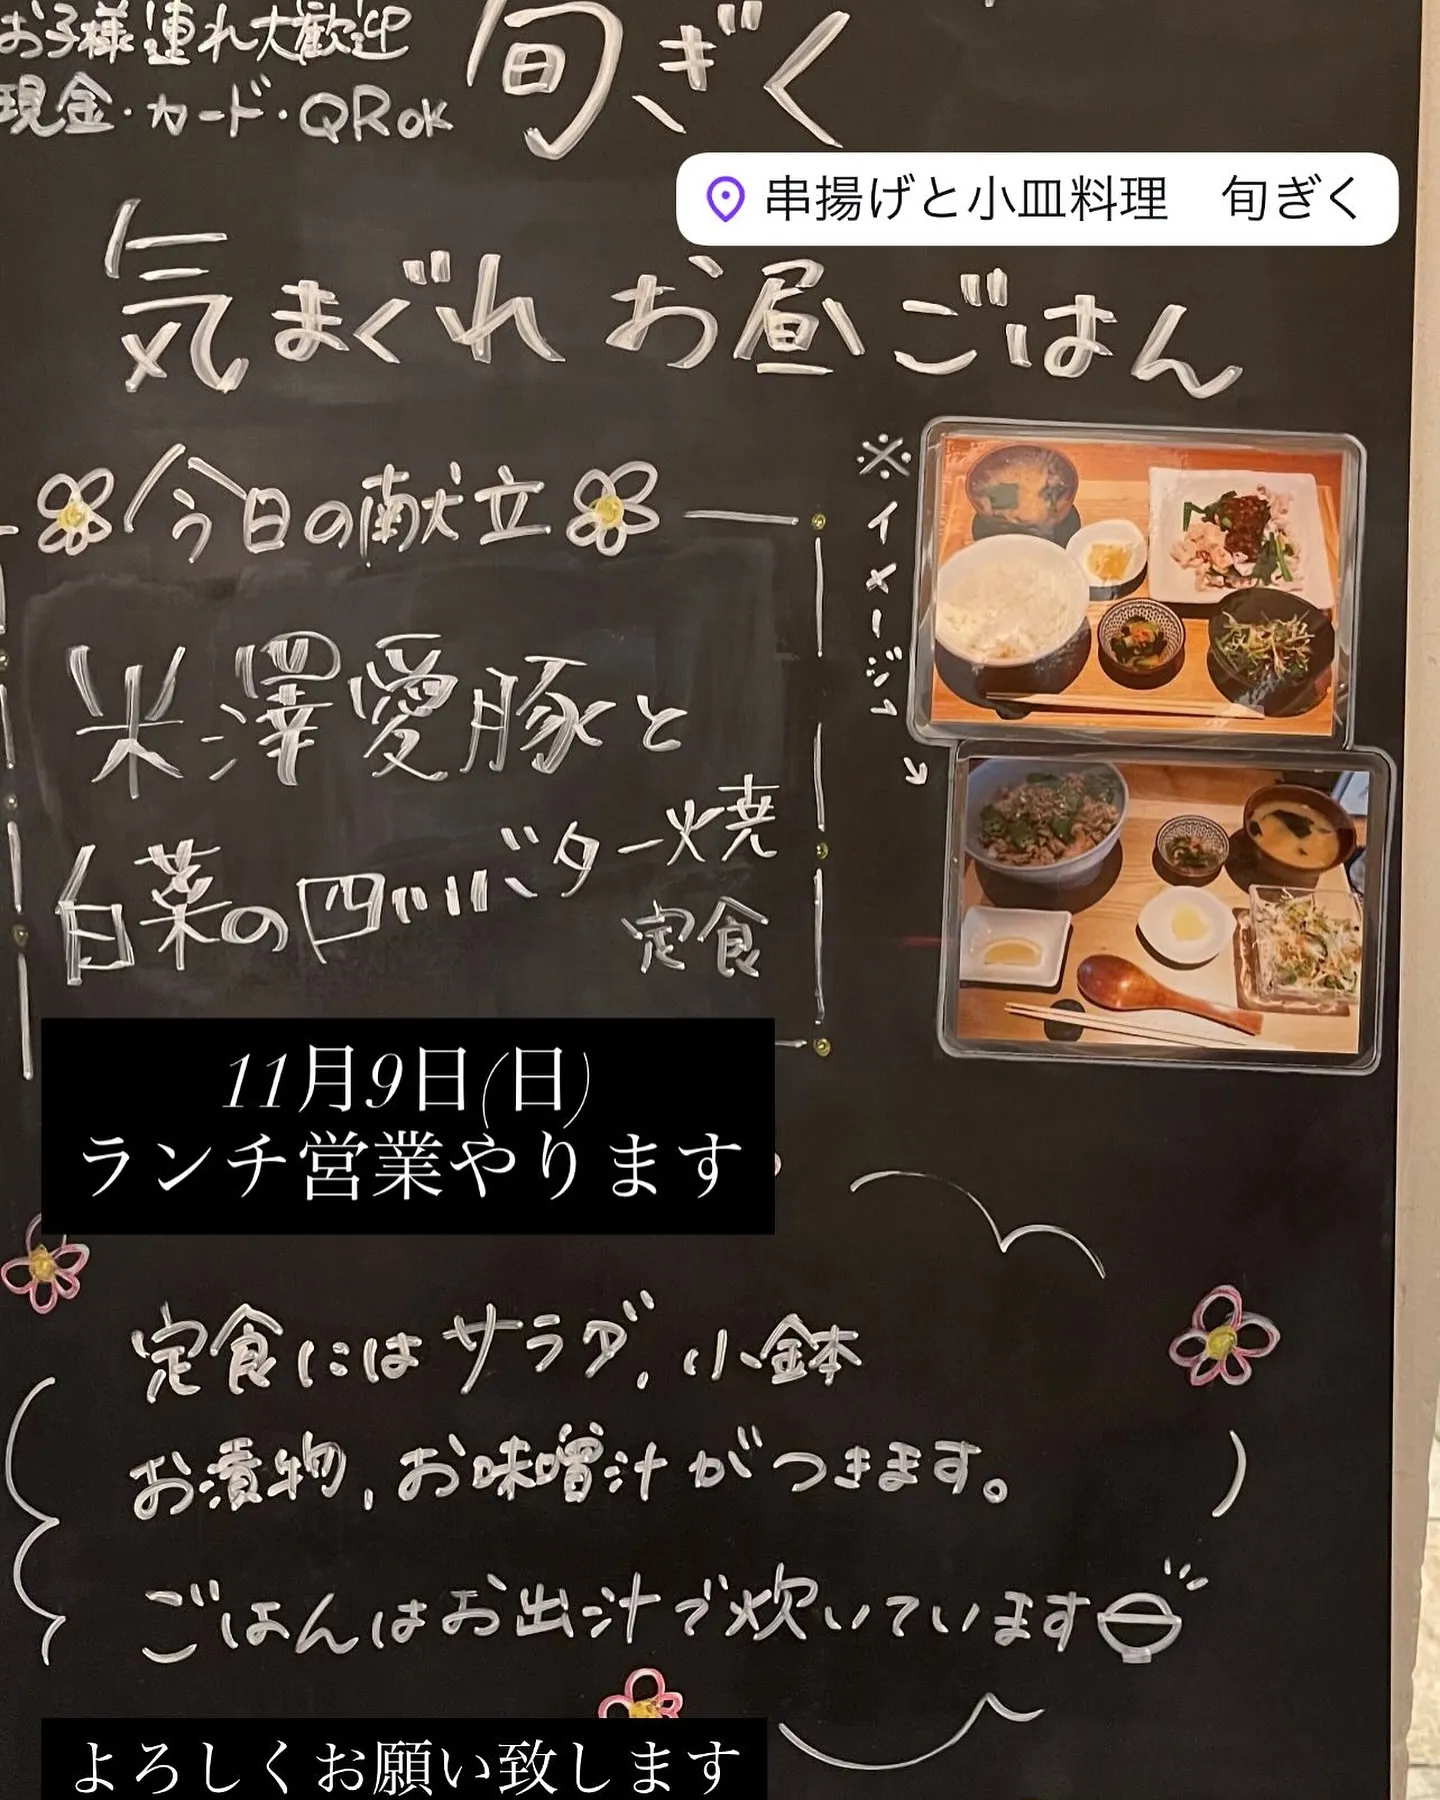 お子様連れ大歓迎
現金・カード・QR OK
旬ぎく
串揚げと小皿料理　旬ぎく
気まぐれお昼ごはん
今日の献立
※イメージ↓
米澤愛豚と
白菜の四川バター焼
定食
11月9日(日)
ランチ営業やります
定食にはサラダ、小鉢
お漬物、お味噌汁がつきます。
ごはんはお出汁で炊いています
よろしくお願い致します